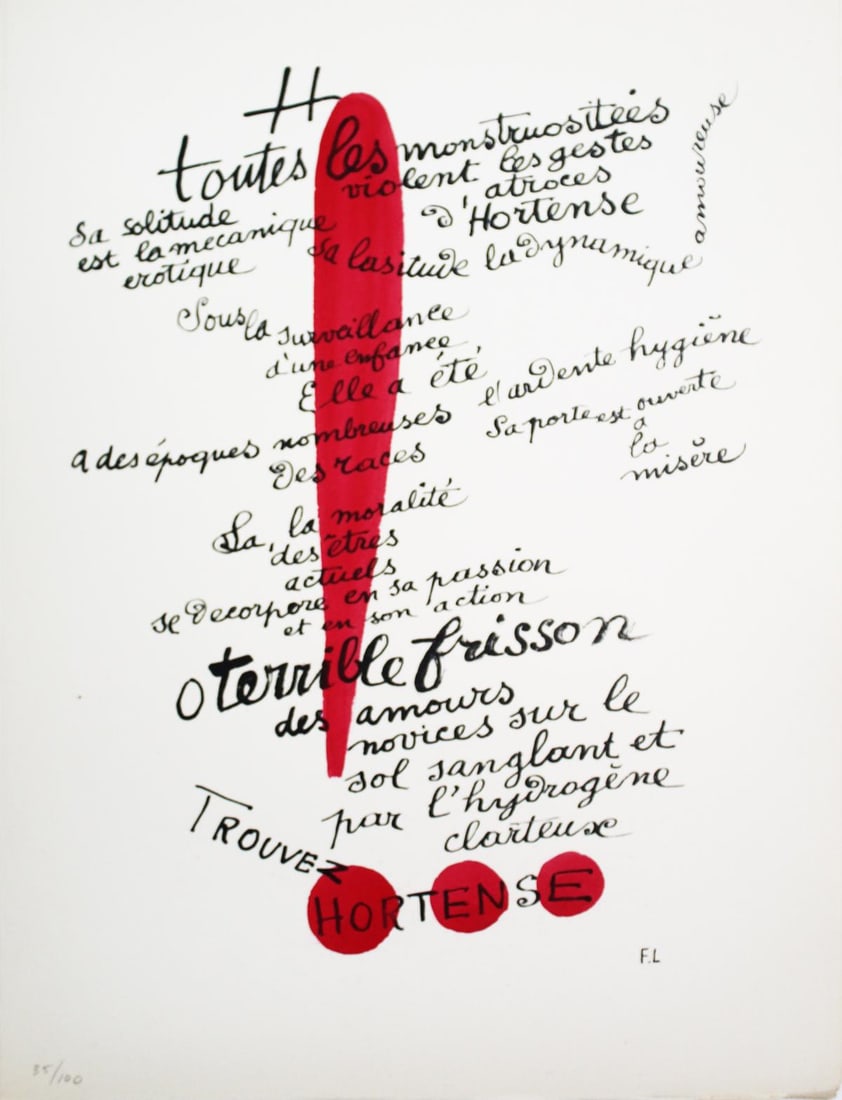 H
toutes les monstruositées
violent les gestes
atroces
d'Hortense
Sa solitude
est la mecanique
erotique
sa lasitude la dynamique amoureuse
Sous la surveillance
d'une enfance
Elle a été,
a des époques nombreuses
l'ardente hygiène
des races
Sa porte est ouverte
a
la
misère
La, la moralité
des êtres
actuels
se decorpore en sa passion
et en son action
O terrible frisson
des amours
novices sur le
sol sanglant et
par l'hydrogène
clarteuse
TROUVEZ
HORTENSE
F.L
35/100